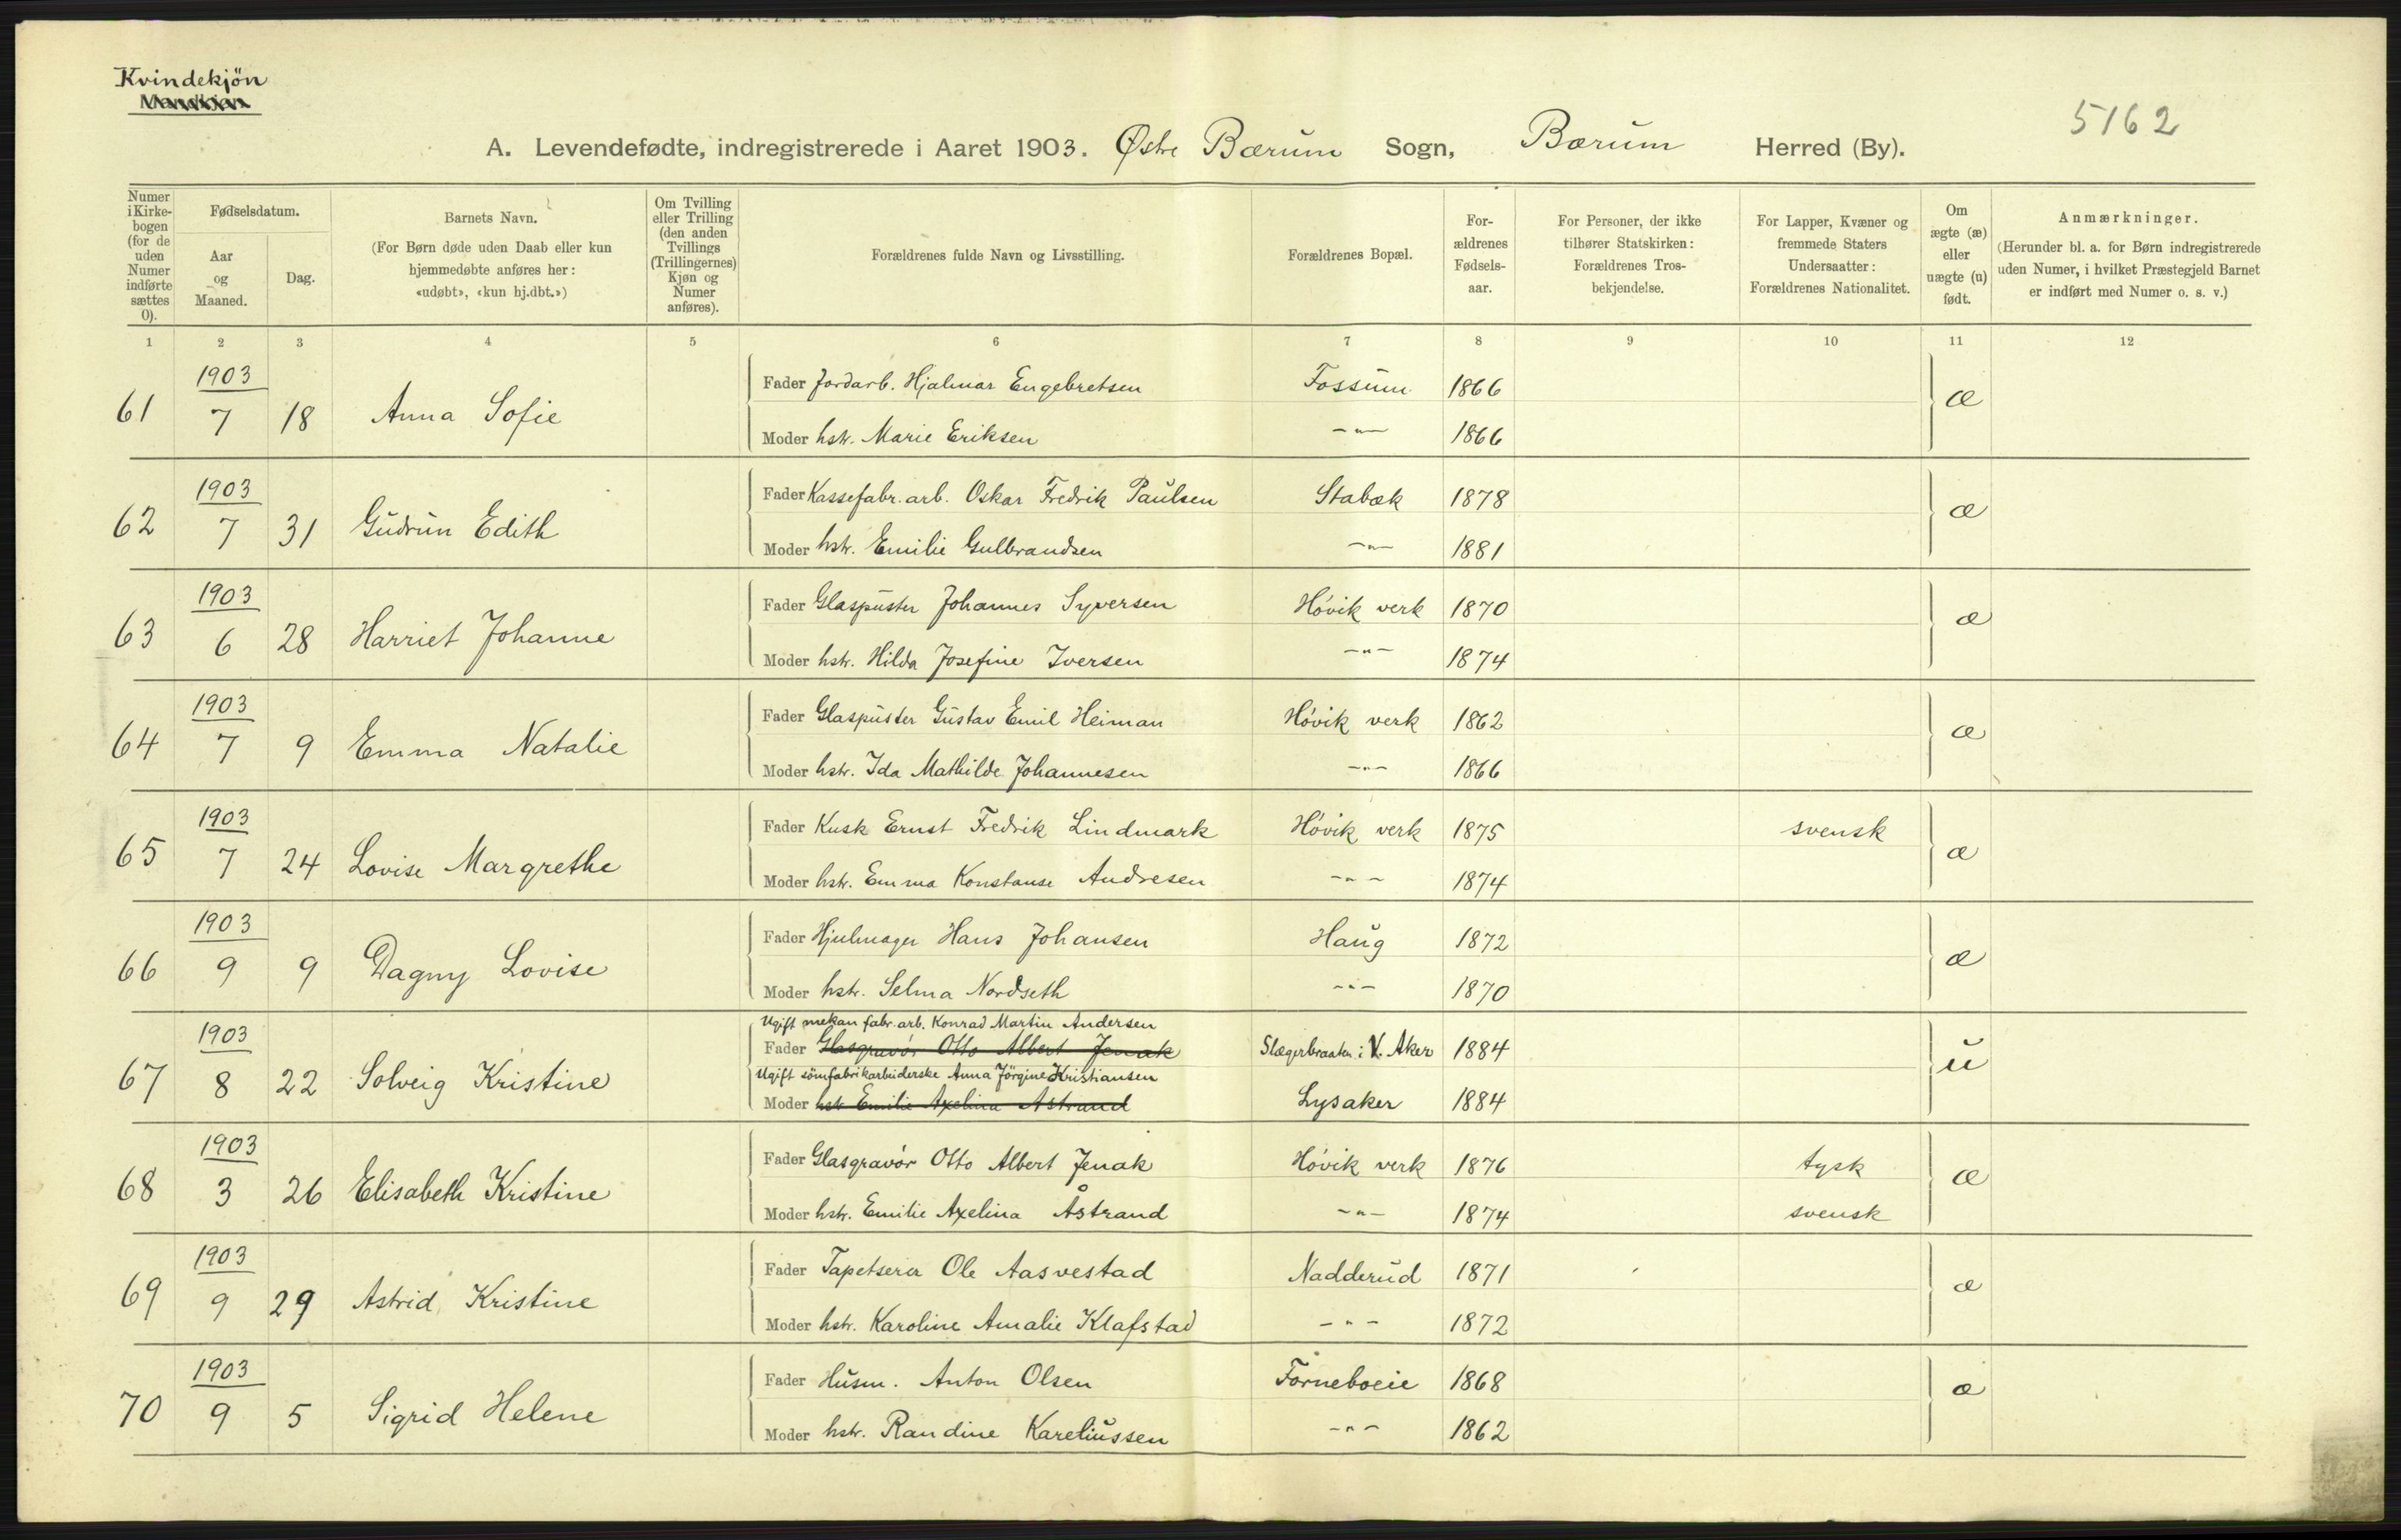 Kvindekjön
Mandkjøn
5162
A. Levendefødte, indregistrerede i Aaret 1903. Østre Bærum Sogn, Bærum Herred (By).
Numer i Kirke-bogen (for de uden Numer indførte sættes 0).
Fødselsdatum.
Aar og Maaned.
Dag.
Barnets Navn.
(For Børn døde uden Daab eller kun hjemmedøbte anføres her: «udøbt», «kun hj.dbt.»)
Om Tvilling eller Trilling (den anden Tvillings (Trillingernes) Kjøn og Numer anføres).
Forældrenes fulde Navn og Livsstilling.
Forældrenes Bopæl.
For-ældrenes Fødsels-aar.
For Personer, der ikke tilhører Statskirken: Forældrenes Tros-bekjendelse.
For Lapper, Kvæner og fremmede Staters Undersaatter: Forældrenes Nationalitet.
Om ægte (æ) eller uægte (u) født.
Anmærkninger.
(Herunder bl. a. for Børn indregistrerede uden Numer, i hvilket Præstegjeld Barnet er indført med Numer o. s. v.)
1 2 3 4 5 6 7 8 9 10 11 12
1903
Fader Jordarb. Hjalmar Engebretsen Fossum 1866
61 7 18 Anna Sofie æ
Moder hstr. Marie Eriksen -"- 1866
1903
Fader Kassefabr. arb. Oskar Fredrik Paulsen Stabæk 1878
62 7 31 Gudrun Edith æ
Moder hstr. Emilie Gulbrandsen -"- 1881
1903
Fader Glaspuster Johannes Syversen Hövik verk 1870
63 6 28 Harriet Johanne æ
Moder hstr. Hilda Josefine Iversen -"- 1874
1903
Fader Glaspuster Gustav Emil Heiman Hövik verk 1862
64 7 9 Emma Natalie æ
Moder hstr. Ida Mathilde Johannesen -"- 1866
1903
Fader Kusk Ernst Fredrik Lindmark Hövik verk 1875 svensk
65 7 24 Lovise Margrethe æ
Moder hstr. Emma Konstanse Andresen -"- 1874
1903
Fader Hjulmager Hans Johansen Haug 1872
66 9 9 Dagny Lovise æ
Moder hstr. Selma Nordseth -"- 1870
1903
Ugift mekan fabr. arb. Konrad Martin Andersen
Fader Glasgravör Otto Albert Jenak Slægerbraaten i V. Aker 1884
67 8 22 Solveig Kristine u
Ugift sömfabrikarbeiderske Anna Jörgine Kristiansen
Moder hstr Emilie Axelina Astrand Lysaker 1884
1903
Fader Glasgravör Otto Albert Jenak Hövik verk 1876 tysk
68 3 26 Elisabeth Kristine æ
Moder hstr. Emilie Axelina Åstrand -"- 1874 svensk
1903
Fader Tapetserer Ole Aasvestad Nadderud 1871
69 9 29 Astrid Kristine æ
Moder hstr. Karoline Amalie Klafstad -"- 1872
1903
Fader Husm. Anton Olsen Forneboeie 1868
70 9 5 Sigrid Helene æ
Moder hstr. Randine Kareliussen -"- 1862